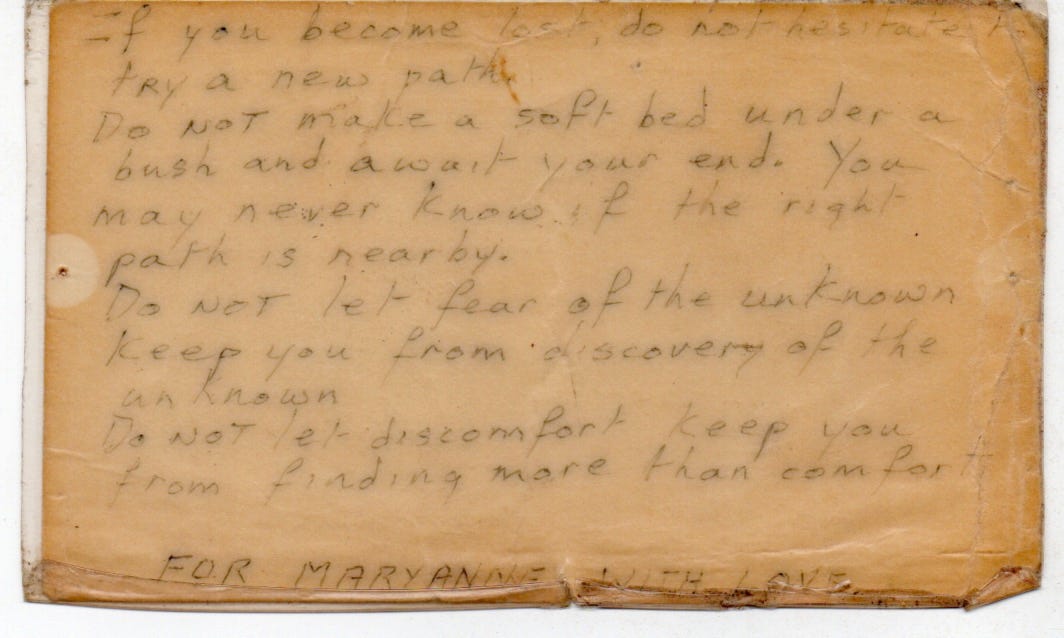 If you become lost, do not hesitate to
try a new path.
Do NOT make a soft bed under a
bush and await your end. You
may never know if the right
path is nearby.
Do NOT let fear of the unknown
keep you from discovery of the
unknown
Do NOT let discomfort keep you
from finding more than comfort
FOR MARYANNE WITH LOVE